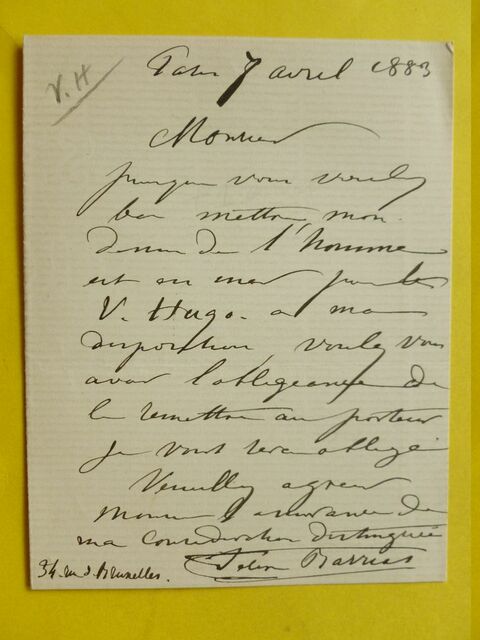 V. H
Paris 7 avril 1883
Monsieur
puisque vous voulez
bien mettre mon
dessin de l'homme
est en mer pour les
V. Hugo. a ma
disposition, voulez vous
avoir l'obligeance de
le remettre au porteur
je vous serai obligé
Veuillez agreer
Monsieur l'assurance de
ma consideration distinguée
Félix Barrias
34. rue d. Bruxelles.